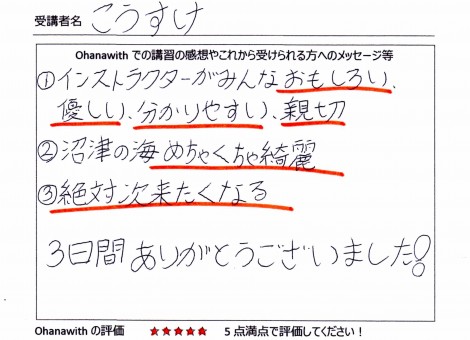 受講者名 こうすけ
Ohanawith での講習の感想やこれから受けられる方へのメッセージ等
①インストラクターがみんなおもしろい、
優しい、分かりやすい、親切
②沼津の海めちゃくちゃ綺麗
③絶対次来たくなる
3日間ありがとうございました!
Ohanawith の評価 ★★★★★ 5点満点で評価してください!